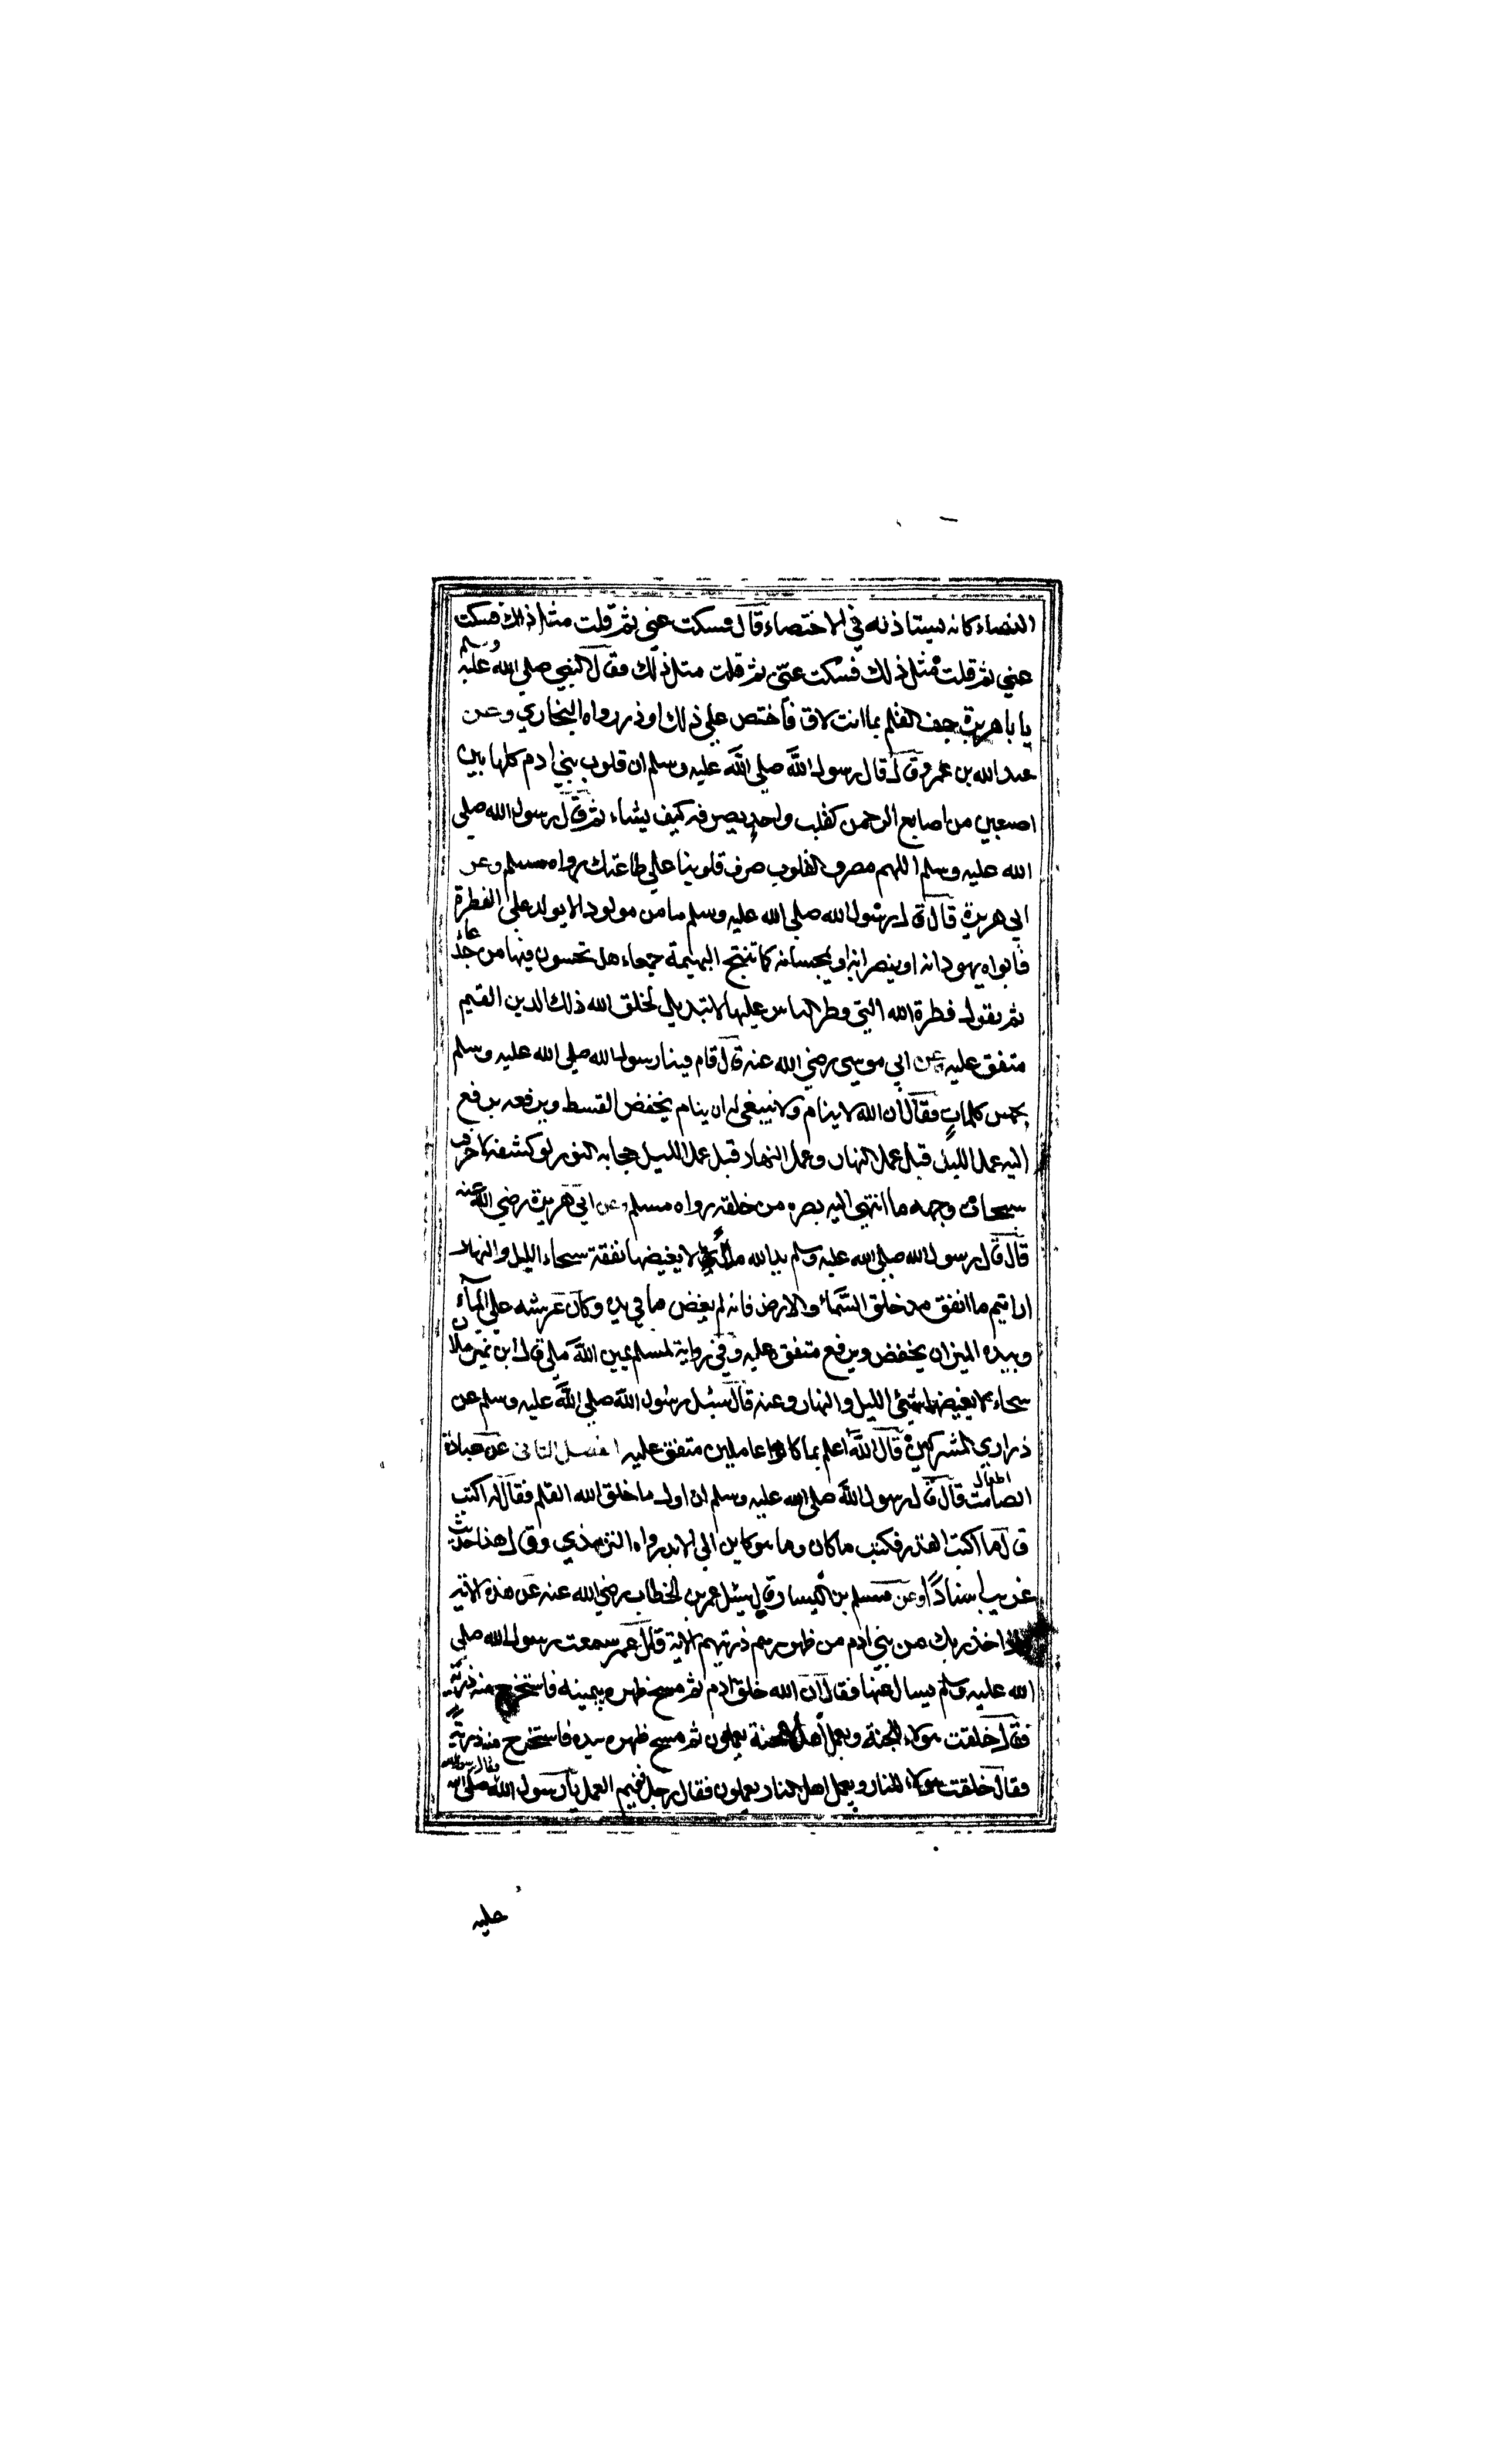 النساء كانه يستاذنه في الاختصاء قال فسكت عني ثم قلت مثل ذلك فسكت
عني ثم قلت مثل ذلك فسكت عني ثم قلت مثل ذلك فقال النبي صلى الله عليه وسلم
يا با هريرة جف القلم بما انت لاق فاختص علي ذلك او ذر رواه البخاري وعن
عبد الله بن عمرو قال قال رسول الله صلي الله عليه وسلم ان قلوب بني ادم كلها بين
اصبعين من اصابع الرحمن كقلب واحد يصرفه كيف يشاء ثم قال رسول الله صلي
الله عليه وسلم اللهم مصرف القلوب صرف قلوبنا علي طاعتك رواه مسلم وعن
ابي هريرة قال قال رسول الله صلي الله عليه وسلم ما من مولود الا يولد علي الفطرة
فابواه يهودانه او ينصرانه او يمجسانه كما تنتج البهيمة بهيمة جمعاء هل تحسون فيها من جدعاء
ثم يقول فطرة الله التي فطر الناس عليها لا تبديل لخلق الله ذلك الدين القيم
متفق عليه وعن ابي موسي رضي الله عنه قال قام فينا رسول الله صلي الله عليه وسلم
بخمس كلمات فقال ان الله لا ينام ولا ينبغي له ان ينام يخفض القسط ويرفعه يرفع
اليه عمل الليل قبل عمل النهار وعمل النهار قبل عمل الليل حجابه النور لو كشفه لاحرقت
سبحات وجهه ما انتهي اليه بصره من خلقه رواه مسلم وعن ابي هريرة رضي الله عنه
قال قال رسول الله صلي الله عليه وسلم يد الله ملأي لا يغيضها نفقة سحاء الليل والنهار
ارايتم ما انفق مذ خلق السماء والارض فانه لم يغض ما في يده وكان عرشه علي الماء
وبيده الميزان يخفض ويرفع متفق عليه وفي رواية لمسلم يمين الله ملي قال ابن نمير ملان
سحاء لا يغيضها شئ الليل والنهار وعنه قال سئل رسول الله صلي الله عليه وسلم عن
ذراري المشركين قال الله اعلم بما كانوا عاملين متفق عليه الفصل الثاني عن عبادة
الصامت قال قال رسول الله صلي الله عليه وسلم ان اول ما خلق الله القلم فقال له اكتب
قال ما اكتب القدر فكتب ما كان وما هو كاين الي الابد رواه الترمذي وقال هذا حديث
غريب اسنادا وعن مسلم بن يسار قال سئل عمر بن الخطاب رضي الله عنه عن هذه الاية
واذ اخذ ربك من بني ادم من ظهورهم ذريتهم الاية قال عمر سمعت رسول الله صلي
الله عليه وسلم يسال عنها فقال ان الله خلق ادم ثم مسح ظهره بيمينه فاستخرج منه ذرية
فقال خلقت هولاء للجنة وبعمل اهل الجنة يعملون ثم مسح ظهره بيده فاستخرج منه ذرية
فقال خلقت هولاء للنار وبعمل اهل النار يعملون فقال رجل ففيم العمل يا رسول الله فقال رسول الله صلي الله
عليه